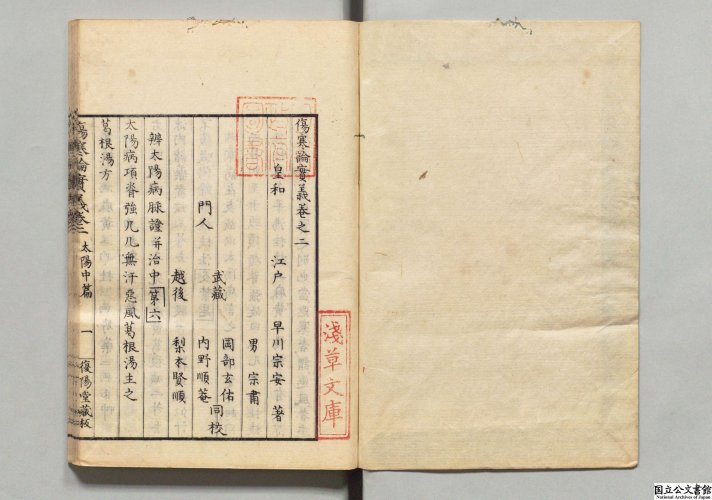 傷寒論實義卷之二
皇和 江戸 早川宗安 著
男 宗肅
門人 武藏 岡部玄佑 同校
内野順菴
越後 梨本賢順
辨太陽病脉證并治中第六
太陽病項脊強几几無汗惡風葛根湯主之
葛根湯方
傷寒論實義卷二 太陽中篇 一 復陽堂藏板
淺草文庫
国立公文書館
National Archives of Japan